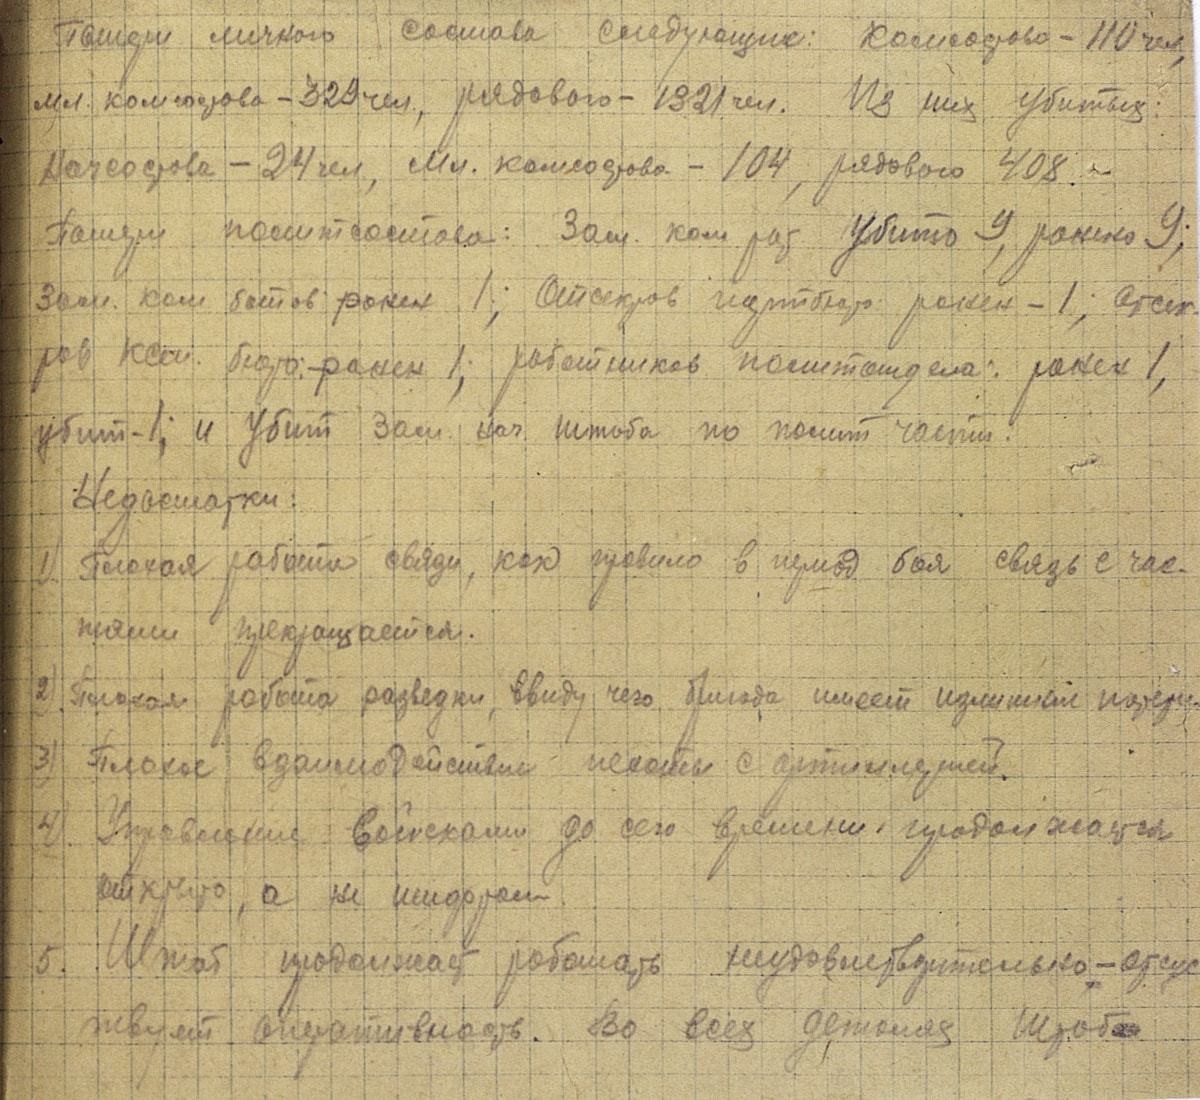 Потери личного состава следующие: Комсостава – 110 чел,
мл. комсостава – 329 чел., рядового – 1321 чел. Из них убитых:
Начсостава – 24 чел, Мл. комсостава – 104, рядового 408. –
Потери политсостава: Зам. ком рот убито 9, ранено 9;
Зам. ком батов ранен 1; Отсекров партбюро ранен – 1; отсек-
ров ксм. бюро: – ранен 1; работников политотдела: ранен 1,
убит – 1; и убит Зам. нач. штаба по полит части.
Недостатки:
1) Плохая работа связи, как правило в период боя связь с час-
тями прекращается.
2). Плохая работа разведки, ввиду чего бригада имеет излишние потери.
3) Плохое взаимодействие пехоты с артиллерией.
4). Управление войсками до сего времени продолжается
открыто, а не шифром
5. Штаб продолжает работать неудовлетворительно – отсут
твует оперативность. Во всех деталях Штаба